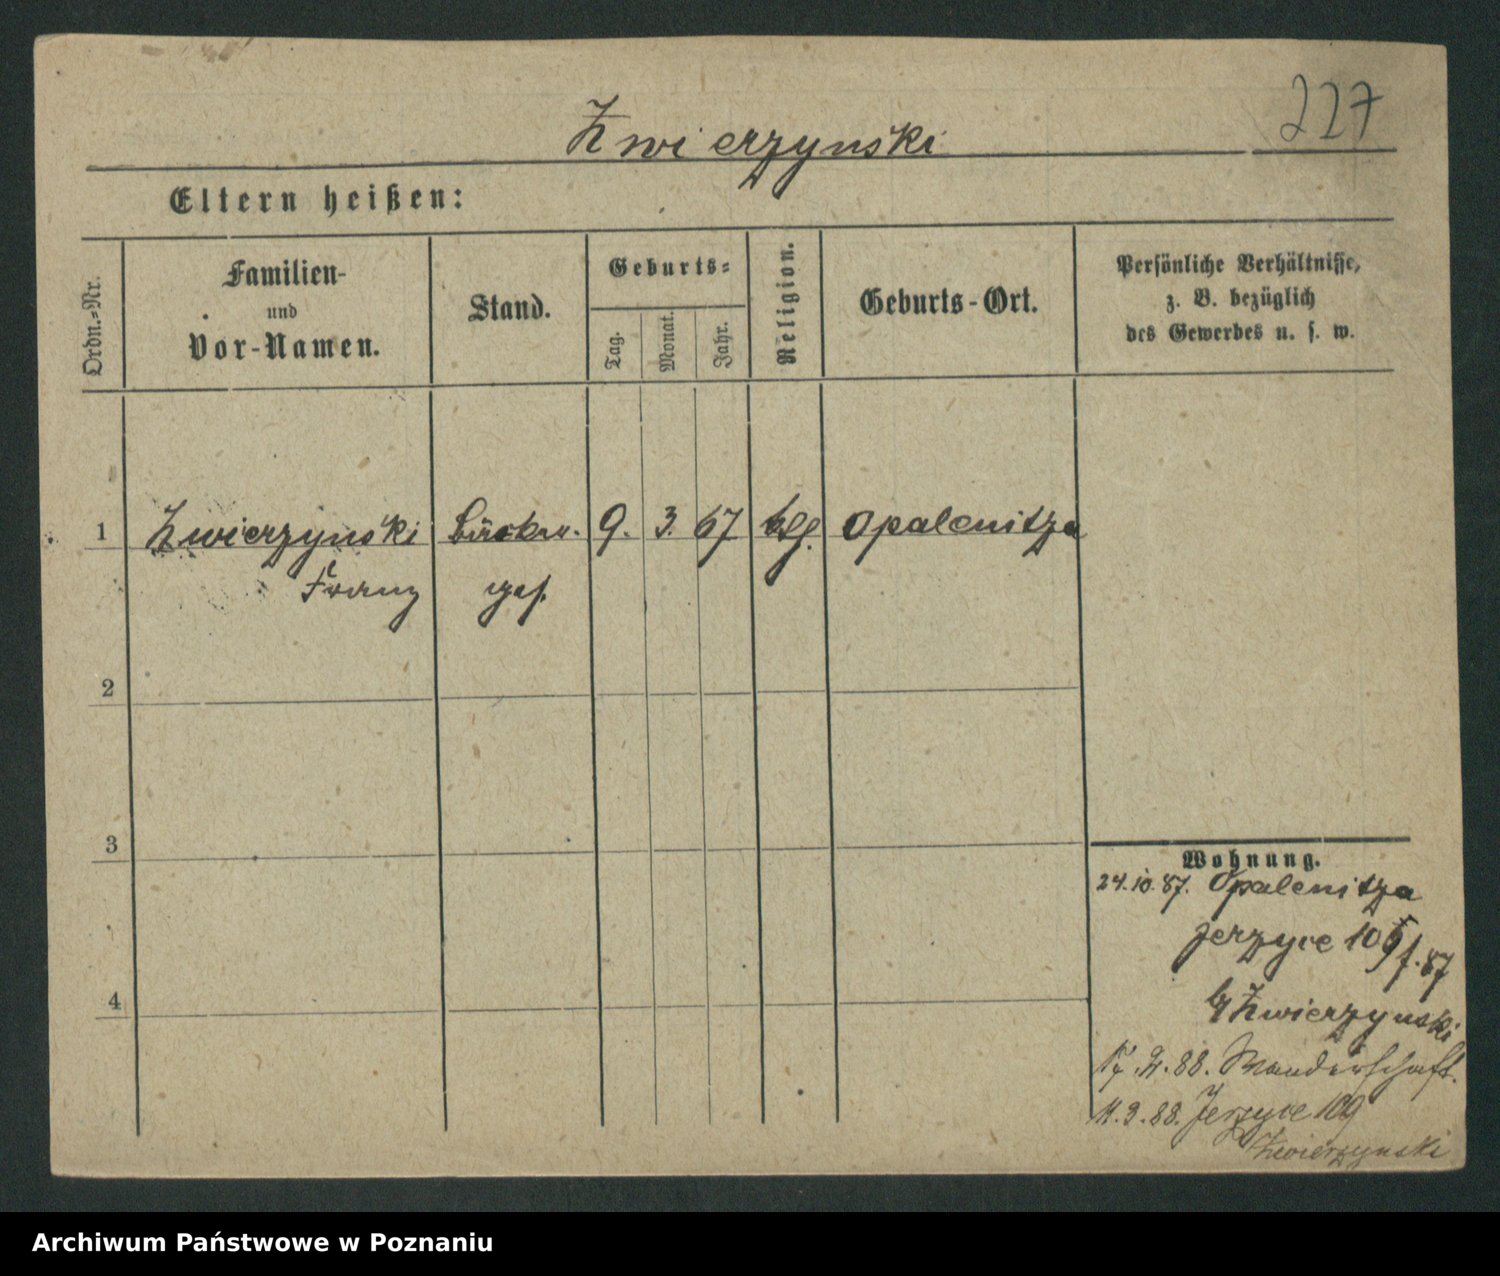 Zwierzynski
227
Eltern heißen:
Ordn.-Nr.
Familien-
und
Vor-Namen.
Stand.
Geburts-
Tag.
Monat.
Jahr.
Religion.
Geburts-Ort.
Persönliche Verhältnisse,
z. B. bezüglich
des Gewerbes u. s. w.
1 Zwierzynski Bäcker 9. 3. 67 ktl. Opalenitza
Franz ges.
2
3
4
Wohnung.
24.10.87. Opalenitza
Jerzyce 109
87
Zwierzynski
88. Wanderschaft.
88. Jerzyce 109
Zwierzynski
Archiwum Państwowe w Poznaniu